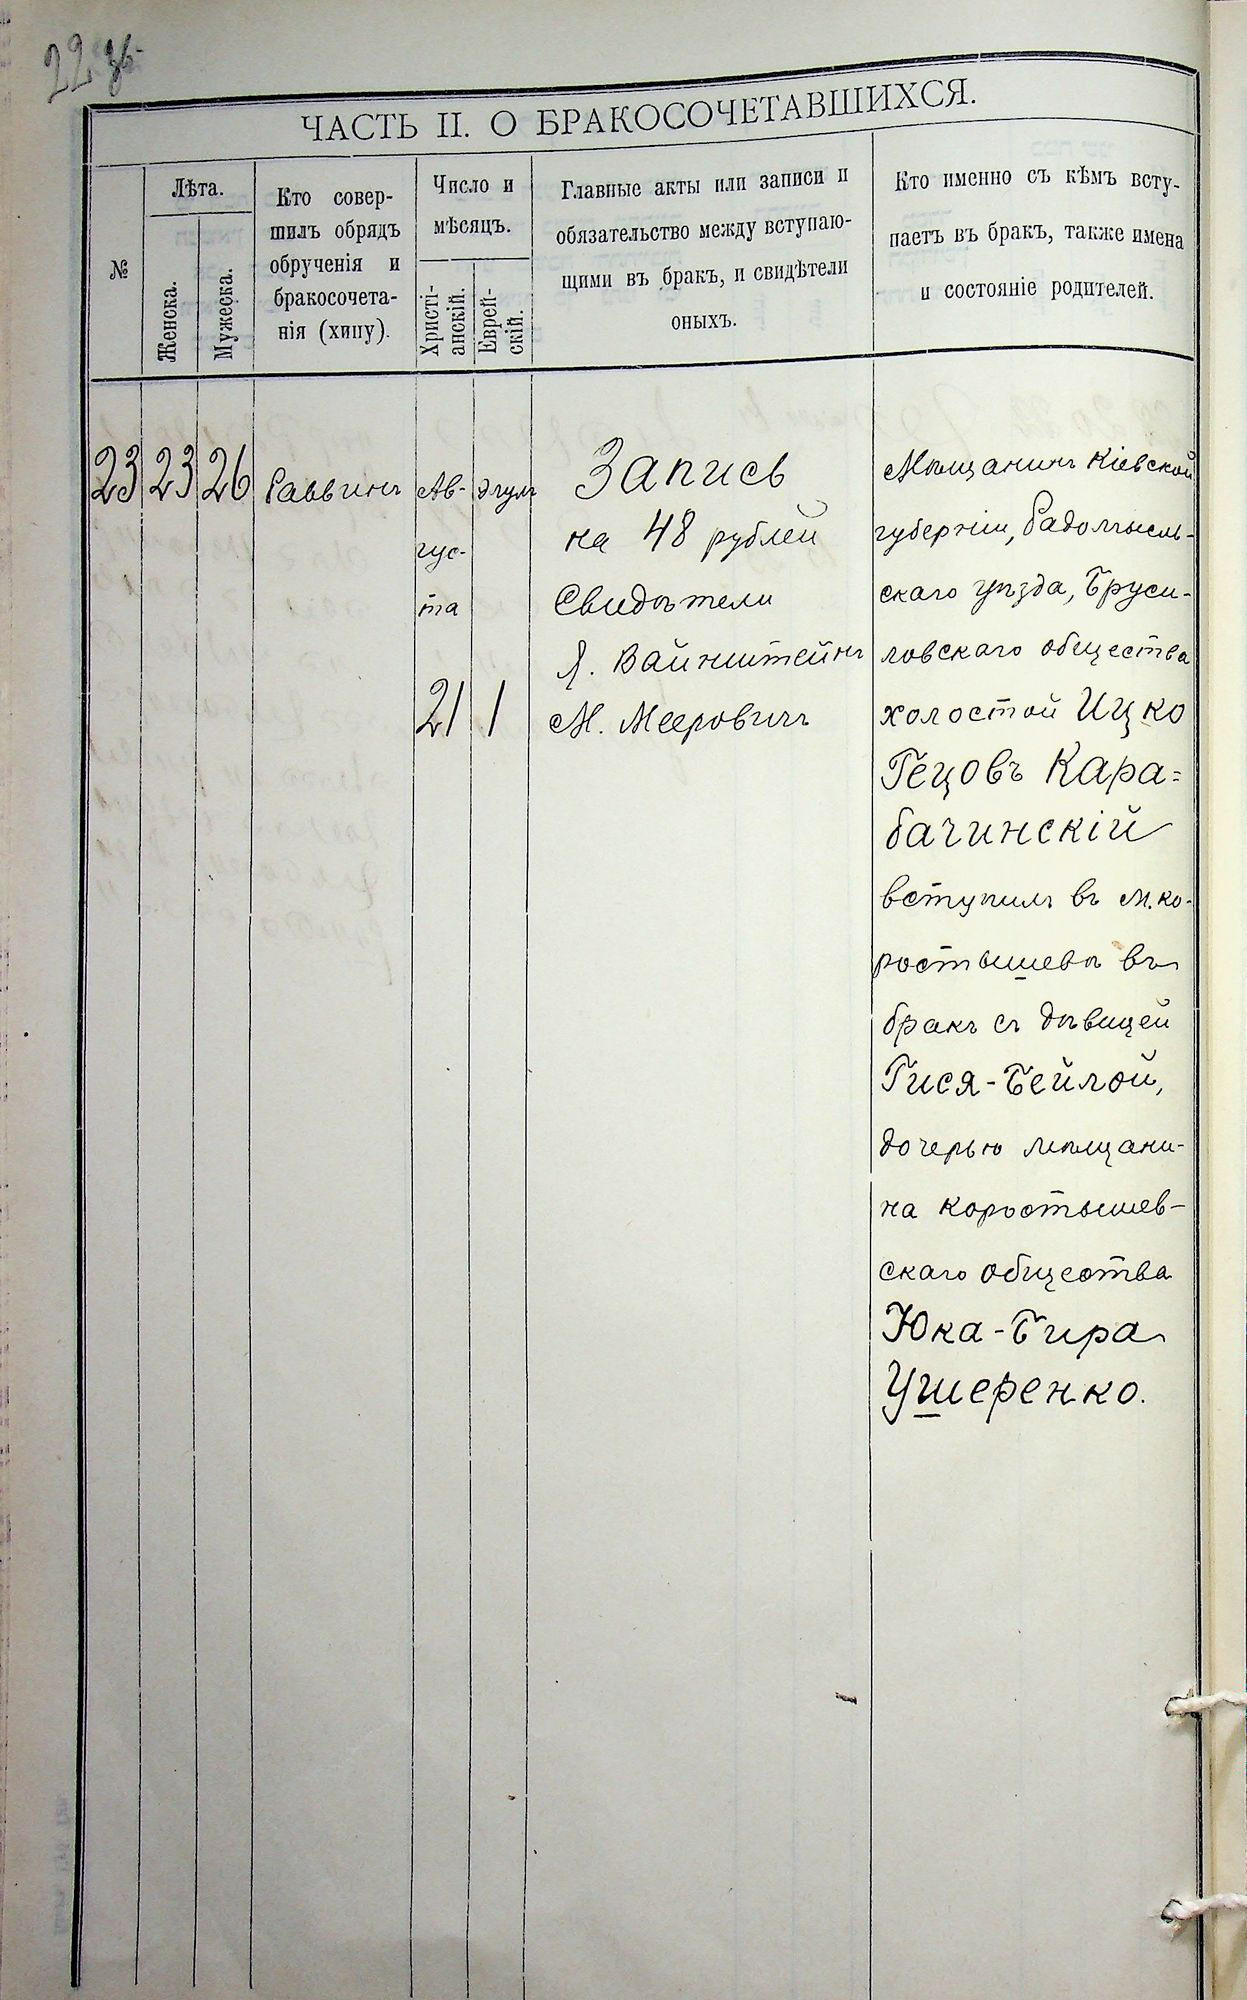 22 об.
ЧАСТЬ II. О БРАКОСОЧЕТАВШИХСЯ.
№
Лѣта.
Женска.
Мужеска.
Кто совер-
шилъ обрядъ
обрученія и
бракосочета-
нія (хипу).
Число и
мѣсяцъ.
Христі-
анскій.
Еврей-
скій.
Главные акты или записи и
обязательство между вступаю-
щими въ бракъ, и свидѣтели
оныхъ.
Кто именно съ кѣмъ всту-
паетъ въ бракъ, также имена
и состояніе родителей.
23
23
26
Раввинъ
Ав-
гус-
та
21
Элулъ
1
Запись
на 48 рублей
Свидѣтели
Я. Вайнштейнъ
М. Мееровичъ
Мѣщанинъ Кіевской
губерніи, Радомысль-
скаго уѣзда, Бруси-
ловскаго общества
холостой Ицко
Гецовъ Кара=
бачинскій
вступилъ въ м. Ко-
ростышевѣ въ
бракъ съ дѣвицей
Гися-Бейлой,
дочерью мѣщани-
на Коростышев-
скаго общества
Юка-Бера
Ушеренко.